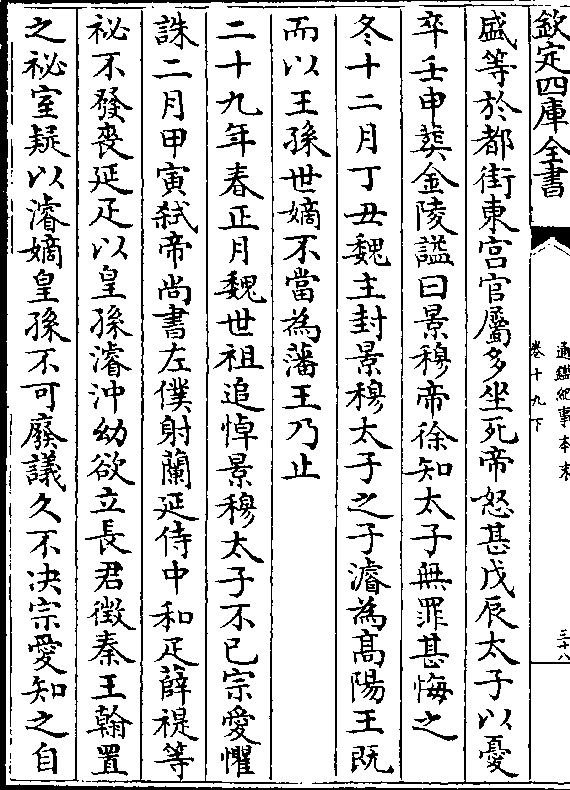 欽定四庫全書
通鑑紀事本末
卷十九下
三十八
盛等於都街東宫官屬多坐死帝怒甚戊辰太子以憂
卒壬申葬金陵謚曰景穆帝徐知太子無罪甚悔之
冬十二月丁丑魏主封景穆太子之子濬為髙陽王既
而以王孫世嫡不當為藩王乃止
二十九年春正月魏世祖追悼景穆太子不已宗愛懼
誅二月甲寅弑帝尚書左僕射蘭延侍中和疋薛禔等
祕不發喪延疋以皇孫濬沖幼欲立長君徴秦王翰置
之祕室疑以濬嫡皇孫不可廢議久不決宗愛知之自